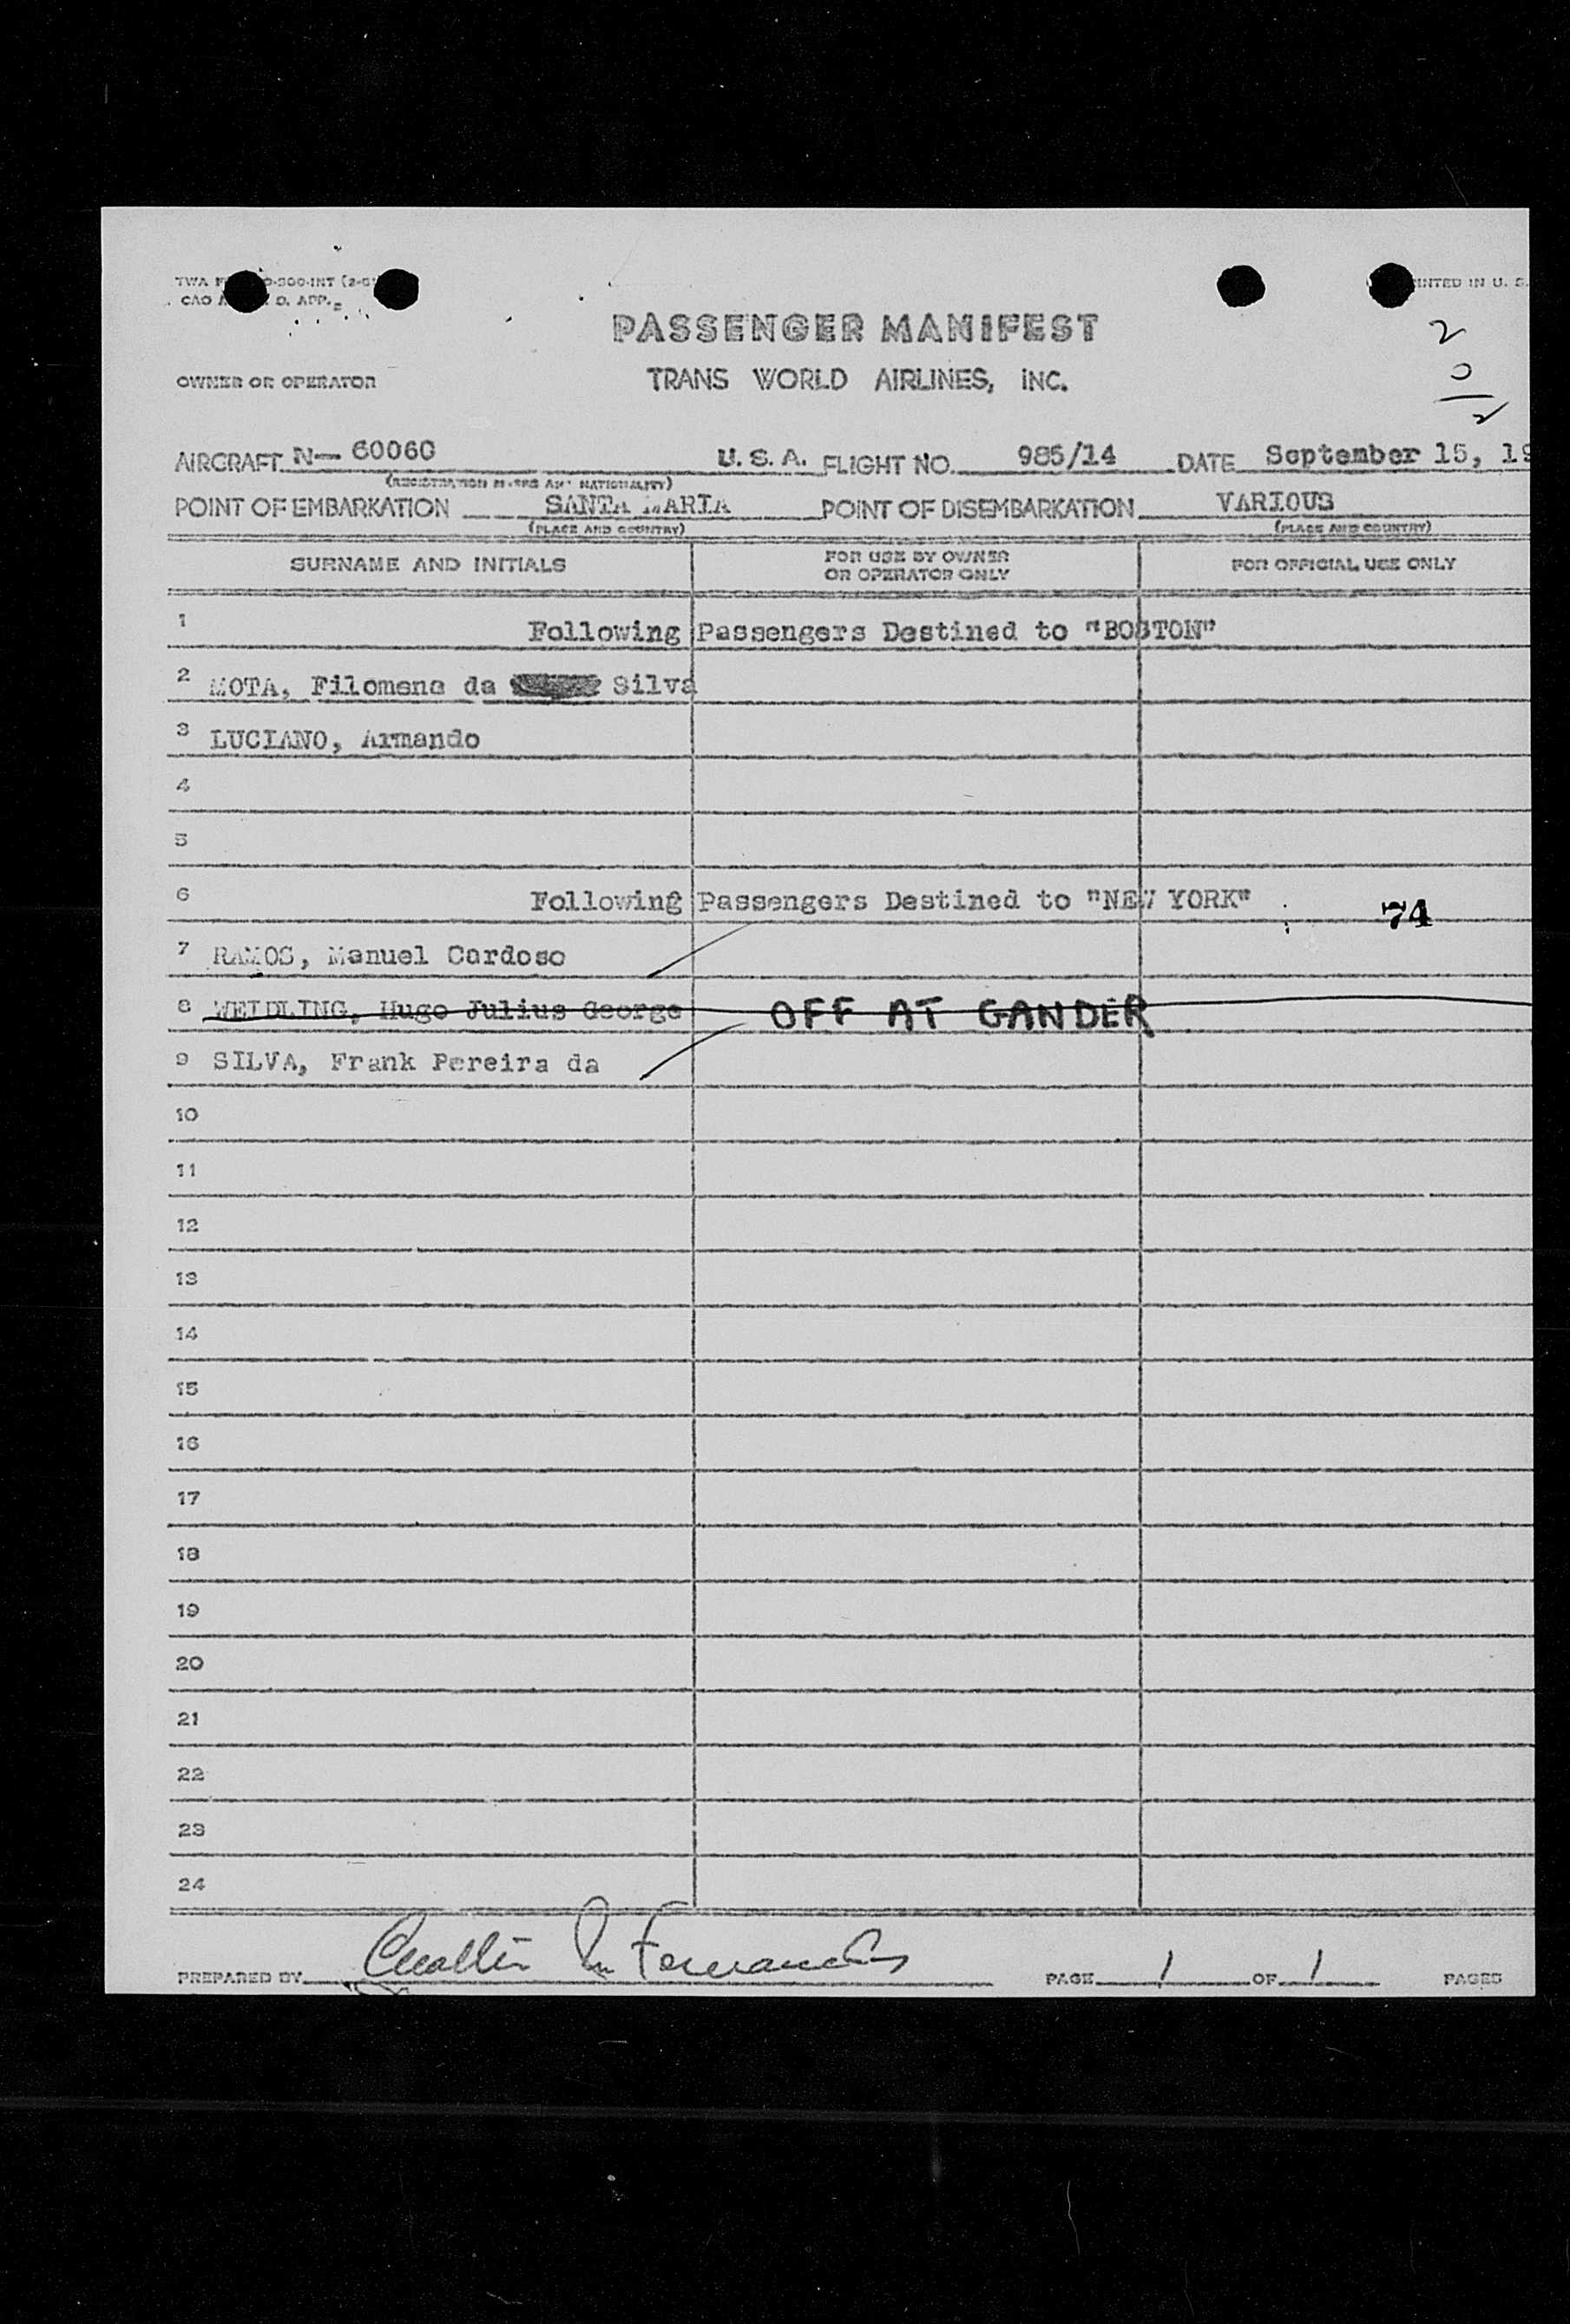 TWA F O-300-INT (2-5
INTED IN U. S.
CAO A D. APP.
PASSENGER MANIFEST
2
OWNER OR OPERATOR
TRANS WORLD AIRLINES, INC.
0
2
AIRCRAFT N— 60060 U. S. A. FLIGHT NO. 985/14 DATE September 15, 19
(REGISTRATION MARKS AND NATIONALITY)
POINT OF EMBARKATION SANTA MARIA POINT OF DISEMBARKATION VARIOUS
(PLACE AND COUNTRY) (PLACE AND COUNTRY)
SURNAME AND INITIALS FOR USE BY OWNER OR OPERATOR ONLY FOR OFFICIAL USE ONLY
1 Following Passengers Destined to "BOSTON"
2 MOTA, Filomena da Silva
3 LUCIANO, Armando
4
5
6 Following Passengers Destined to "NEW YORK" 74
7 RAMOS, Manuel Cardoso
8 WEIDLING, Hugo Julius George OFF AT GANDER
9 SILVA, Frank Pereira da
10
11
12
13
14
15
16
17
18
19
20
21
22
23
24
PREPARED BY PAGE 1 OF 1 PAGES